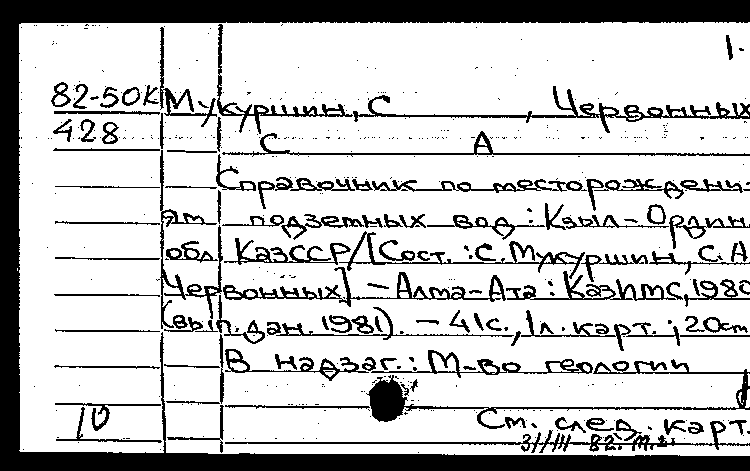 1.
82-50К Мукуршин, С , Червонных
428 С А
Справочник по месторождени-
ям подземных вод : Кзыл-Ордин.
обл. КазССР/[Сост. : С. Мукуршин, С. А.
Червонных] – Алма-Ата : КазИМС, 1980
(вып. дан. 1981). – 41 с., 1 л. карт. ; 20 см
В надзаг. : М-во геологии
10 См. след. карт.